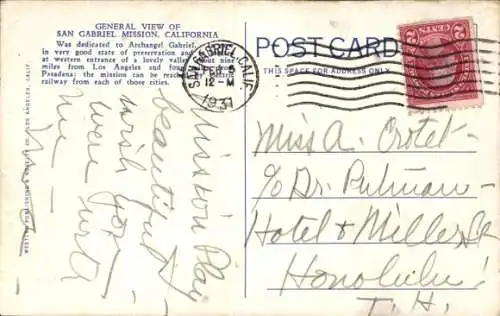 GENERAL VIEW OF
SAN GABRIEL MISSION, CALIFORNIA
Was dedicated to Archangel Gabriel,
in very good state of preservation and
at western entrance of a lovely valley about nine
miles from Los Angeles and four
Pasadena; the mission can be reached by electric
railway from each of those cities.
POST CARD
THIS SPACE FOR ADDRESS ONLY
SAN GABRIEL, CALIF.
12-M
1931
2 CENTS 2
Mission Play
beautiful
wish you
were with
me
Miss A. Crotet
c/o Dr. Putman
Hotel & Miller St
Honolulu
T. H.
WESTERN PUBLISHING & NOVELTY CO., LOS ANGELES, CALIF.